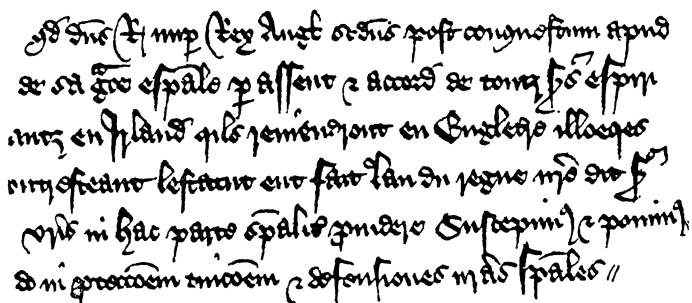 qd dns R nup Rex Angl scdus post conquestum apud
de sa gce espale p assent & accord de toutz Srs espiri
antz en Irland qils reviendront en Engletre illoeqes
ntresteant lestatut ent fait lan du regne nre dit Sr
vris in hac parte spalit pvidere Suscepim9 & ponim9
do in pteccoem tuicoem & defensiones nras spales //